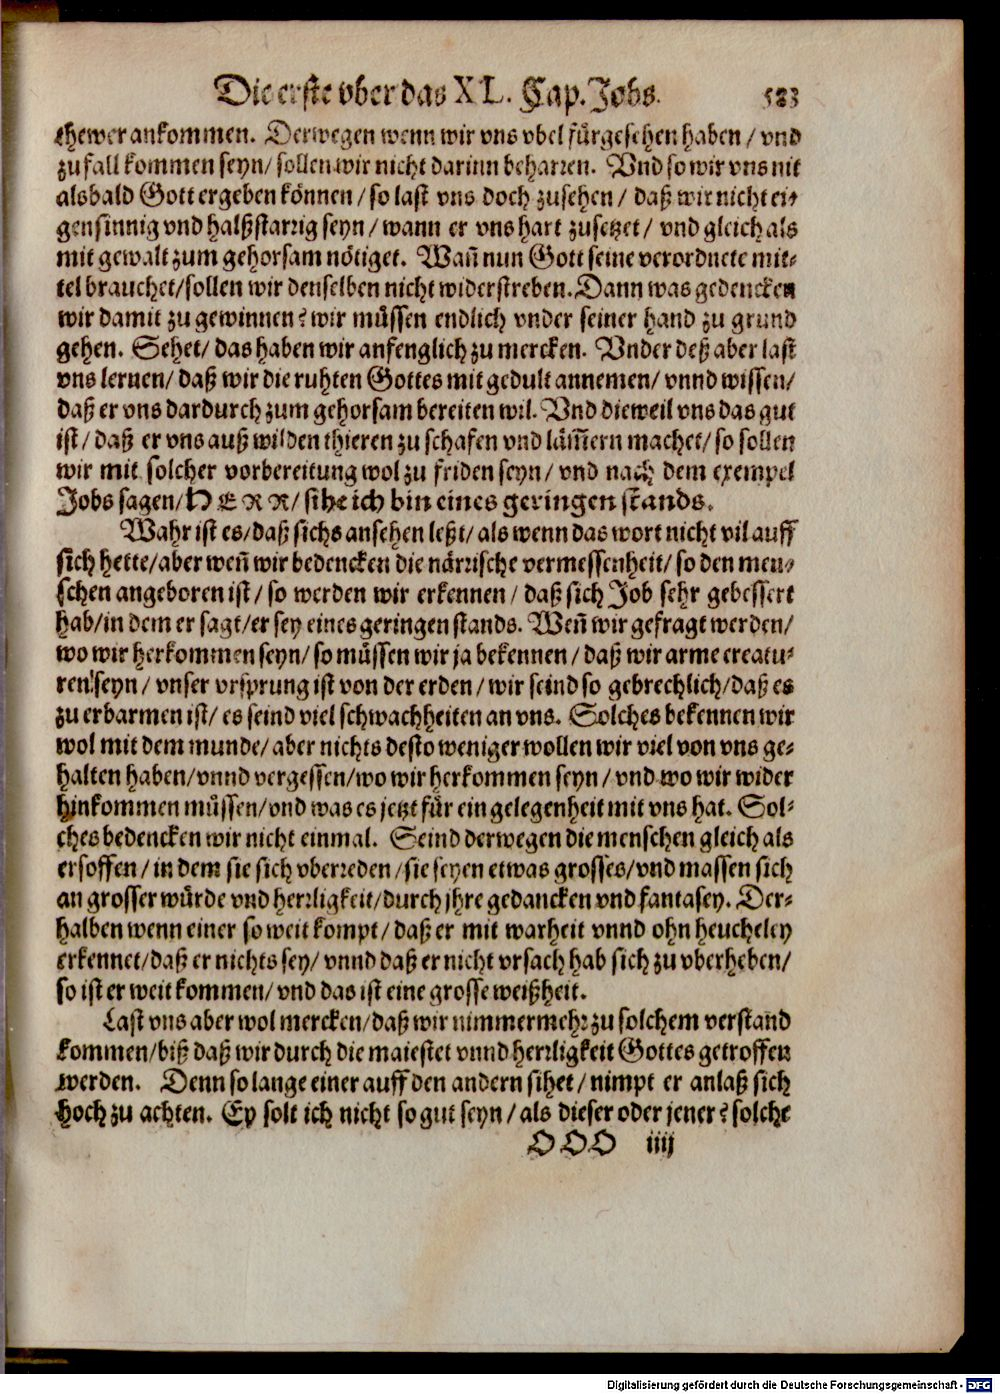 Die erste vber das XL. Cap. Jobs. 583
ehe wer ankommen. Derwegen wenn wir vns vbel fürgesehen haben / vnd
zu fall kommen seyn / sollen wir nicht darinn beharren. Vnd so wir vns nit
alsbald Gott ergeben können / so last vns doch zusehen / daß wir nicht ei-
gensinnig vnd halßstarrig seyn / wann er vns hart zusetzet / vnd gleich als
mit gewalt zum gehorsam nötiget. Wañ nun Gott seine verordnete mit-
tel brauchet / sollen wir denselben nicht widerstreben. Dann was gedencken
wir damit zu gewinnen? wir müssen endlich vnder seiner hand zu grund
gehen. Sehet / das haben wir anfenglich zu mercken. Vnder deß aber last
vns lernen / daß wir die ruhten Gottes mit gedult annemen / vnnd wissen /
daß er vns dardurch zum gehorsam bereiten wil. Vnd dieweil vns das gut
ist / daß er vns auß wilden thieren zu schafen vnd läm̄ern machet / so sollen
wir mit solcher vorbereitung wol zu friden seyn / vnd nach dem exempel
Jobs sagen / HERR / sihe ich bin eines geringen stands.
Wahr ist es / daß sichs ansehen leßt / als wenn das wort nicht vil auff
sich hette / aber weñ wir bedencken die närrische vermessenheit / so den men-
schen angeboren ist / so werden wir erkennen / daß sich Job sehr gebessert
hab / in dem er sagt / er sey eines geringen stands. Weñ wir gefragt werden /
wo wir herkommen seyn / so müssen wir ja bekennen / daß wir arme creatu-
ren seyn / vnser vrsprung ist von der erden / wir seind so gebrechlich / daß es
zu erbarmen ist / es seind viel schwachheiten an vns. Solches bekennen wir
wol mit dem munde / aber nichts desto weniger wollen wir viel von vns ge-
halten haben / vnnd vergessen / wo wir herkommen seyn / vnd wo wir wider
hinkommen müssen / vnd was es jetzt für ein gelegenheit mit vns hat. Sol-
ches bedencken wir nicht einmal. Seind derwegen die menschen gleich als
ersoffen / in dem sie sich vberreden / sie seyen etwas grosses / vnd massen sich
an grosser würde vnd herrligkeit / durch jhre gedancken vnd fantasey. Der-
halben wenn einer so weit kompt / daß er mit warheit vnnd ohn heucheley
erkennet / daß er nichts sey / vnnd daß er nicht vrsach hab sich zu vberheben /
so ist er weit kommen / vnd das ist eine grosse weißheit.
Last vns aber wol mercken / daß wir nimmermehr zu solchem verstand
kommen / biß daß wir durch die maiestet vnnd herrligkeit Gottes getroffen
werden. Denn so lange einer auff den andern sihet / nimpt er anlaß sich
hoch zu achten. Ey solt ich nicht so gut seyn / als dieser oder jener? solche
OOO iiij
Digitalisierung gefördert durch die Deutsche Forschungsgemeinschaft - DFG